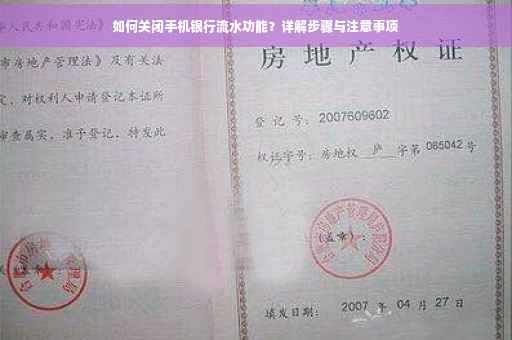 如何关闭手机银行流水功能？详解步骤与注意事项
人民共和国宪法》
市房地产管理法》及有关法
定，对权利人申请登记本证所
审查属实，准予登记，特发此
房地产权证
登 记 号：2007609602
权证字号：房地权 庐 字第 065042 号
（盖章）：
填发日期： 2007 年 04 月 27 日